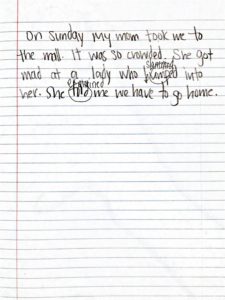 On Sunday my mom took me to
the mall. It was so crowded. She got
mad at a lady who bumped into
her. She told me we have to go home.